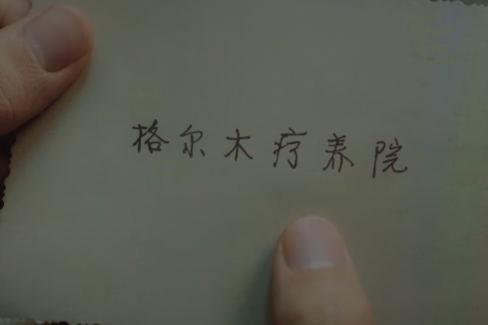 格尔木疗养院